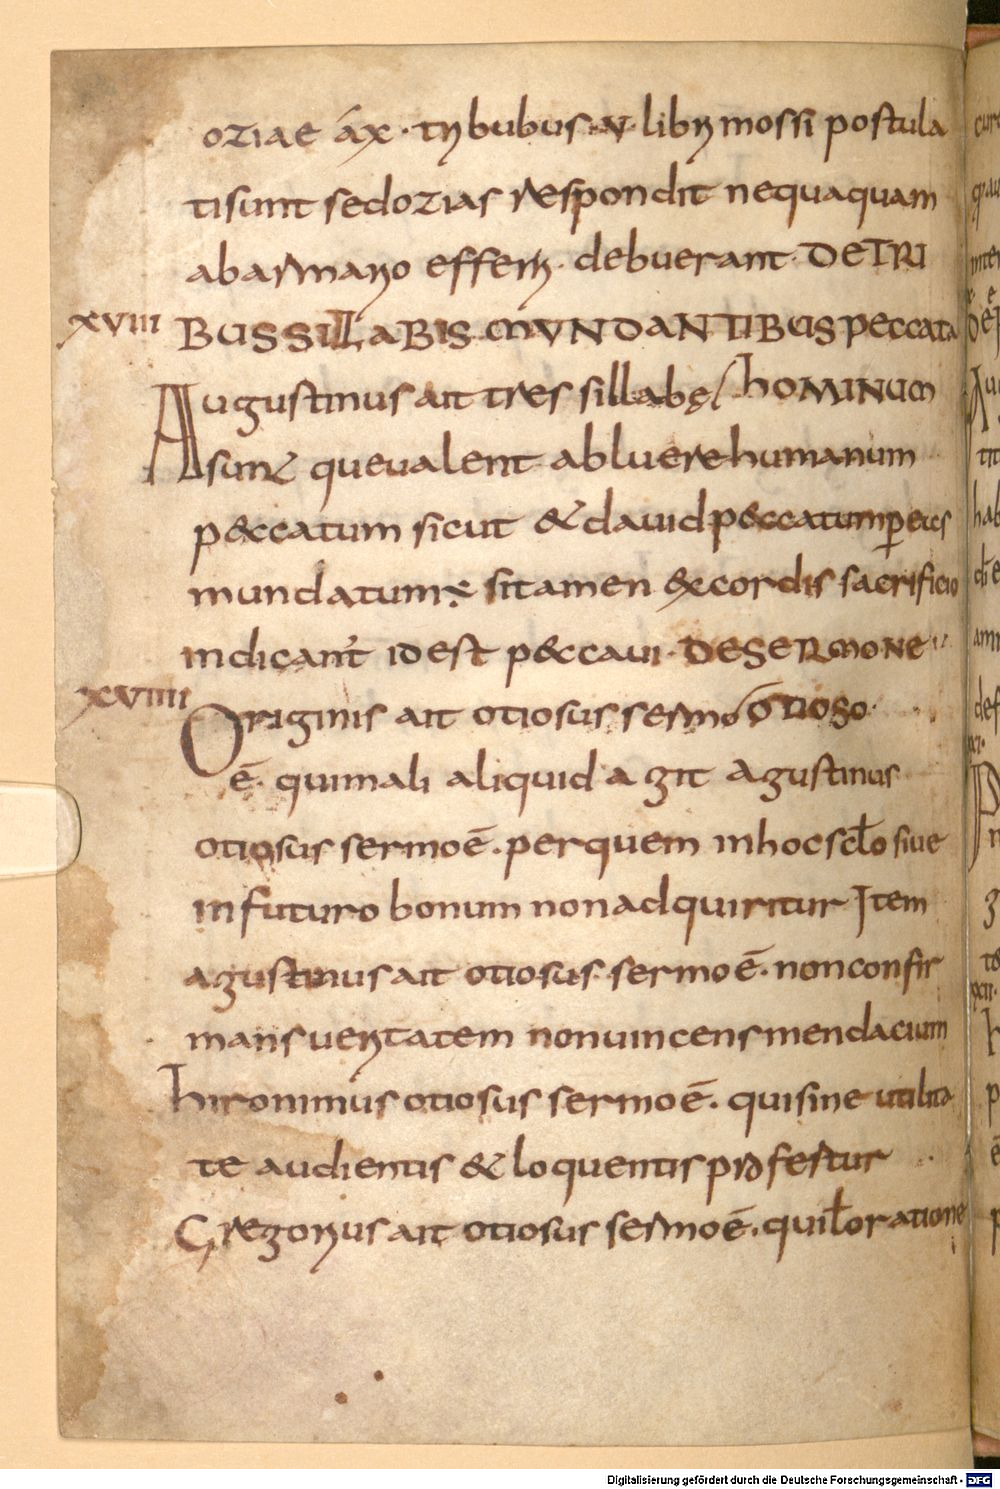 oziae ax · tribubus · v · libri mossi postula
ti sunt sed ozias respondit nequaquam
ab armario efferri · debuerant · DE TRI
XVIII BUS SILLABIS MUNDANTIBUS PECCATA
Augustinus ait tres sillabę HOMINUM
sunt que valent abluere humanum
p&ccatum sicut & dauid p&ccatum p̱ eas
mundatum; si tamen &x cordis sacrificio
indicant̄ id est p&ccaui · DE SERMONE
XVIIII Originis ait otiosus sermo OTIOSO
ē · qui mali aliquid agit Agustinus
otiosus sermo ē · per quem in hoc scło siue
in futuro bonum non adquiritur Item
agustinus ait otiosus sermo ē · non confir
mans ueritatem non uincens mendacium
hironimus otiosus sermo ē · qui sine utilita
te audientis & loquentis profertur
Gregorius ait otiosus sermo ē · qui ł oratione
Digitalisierung gefördert durch die Deutsche Forschungsgemeinschaft - DFG